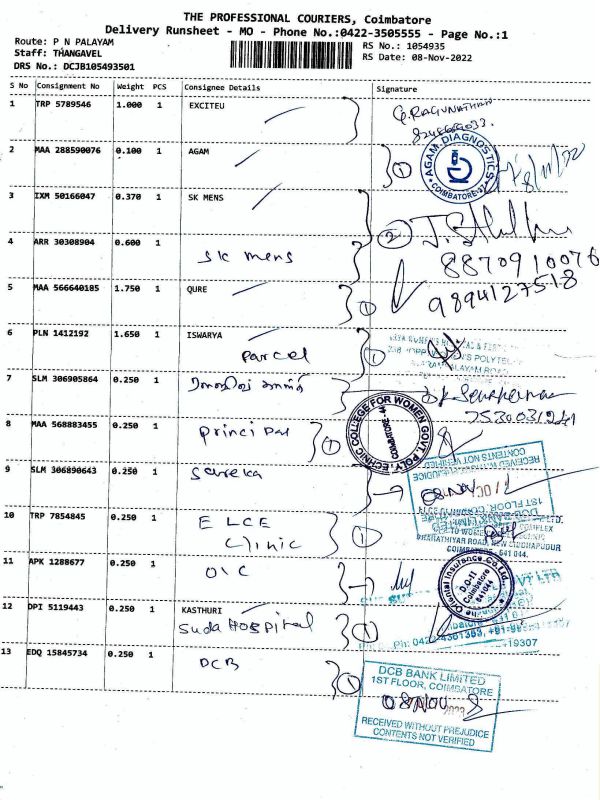 THE PROFESSIONAL COURIERS, Coimbatore
Delivery Runsheet - MO - Phone No.:0422-3505555 - Page No.:1
Route: P N PALAYAM
Staff: THANGAVEL
DRS No.: DCJB105493501
RS No.: 1054935
RS Date: 08-Nov-2022
S No Consignment No Weight PCS Consignee Details Signature
1 TRP 5789546 1.000 1 EXCITEU
G. RAGUNATHAN
2 MAA 288590076 0.100 1 AGAM
1
AGAM DIAGNOSTICS
COIMBATORE-37
3 IXM 50166047 0.370 1 SK MENS
2
4 ARR 30308904 0.600 1 SK mens
8870910076
5 MAA 566640185 1.750 1 QURE
1
9894127518
6 PLN 1412192 1.650 1 ISWARYA
Parcel
1
7 SLM 306905864 0.250 1
8 MAA 568883455 0.250 1 principal
1
COLLEGE FOR WOMEN GOVT. POLYTECHNIC
COIMBATORE-44
9 SLM 306890643 0.250 1 Sureka
08 NOV
RECEIVED WITHOUT PREJUDICE
CONTENTS NOT VERIFIED
1ST FLOOR, COIMBATORE
10 TRP 7854845 0.250 1 ELCE
Clinic
1
BHARATHIYAR ROAD, NEW SIDDHAPUDUR
COIMBATORE- 641 044.
11 APK 1288677 0.250 1 OIC
The Oriental Insurance Co. Ltd.
D.O-II
Coimbatore
641044
12 DPI 5119443 0.250 1 KASTHURI
Suda Hospital
1
13 EDQ 15845734 0.250 1 DCB
1
DCB BANK LIMITED
1ST FLOOR, COIMBATORE
08 NOV
RECEIVED WITHOUT PREJUDICE
CONTENTS NOT VERIFIED